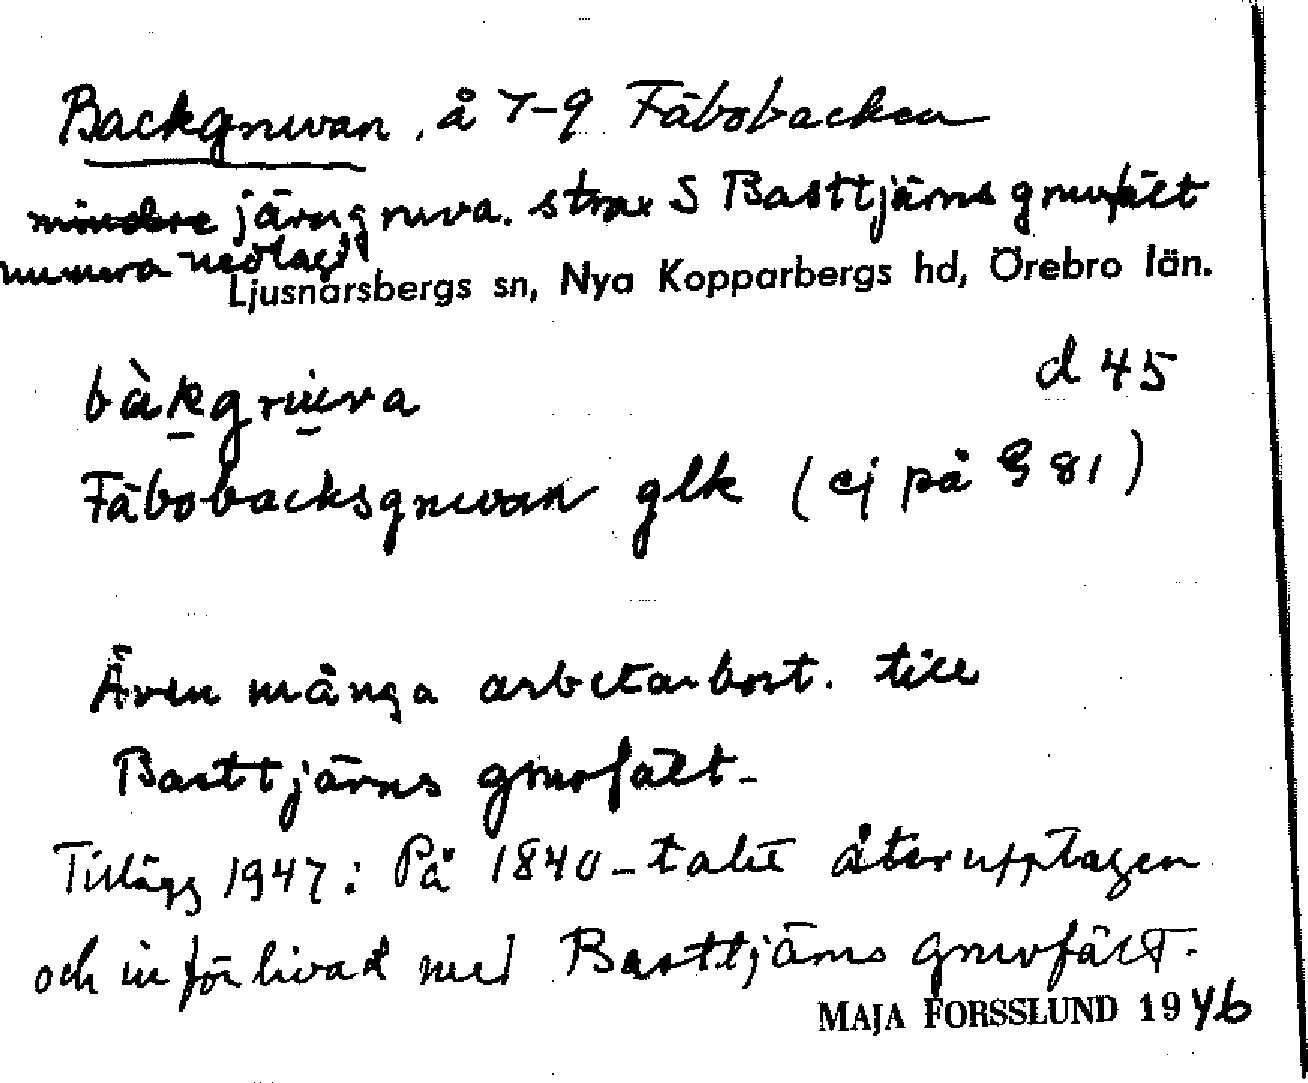 Backgruvan, å 7-9 Fäbobacken
mindre järngruva. strax S Basttjärns gruvfält
numera nedlagd
Ljusnarsbergs sn, Nya Kopparbergs hd, Örebro län.
bàkgruva d 45
Fäbobacksgruvan glk (ej på § 81)
Även många arbetarbost. till
Basttjärns gruvfält-
Tillägg 1947: På 1840-talet återupptagen
och införlivad med Basttjärns gruvfält.
MAJA FORSSLUND 1946